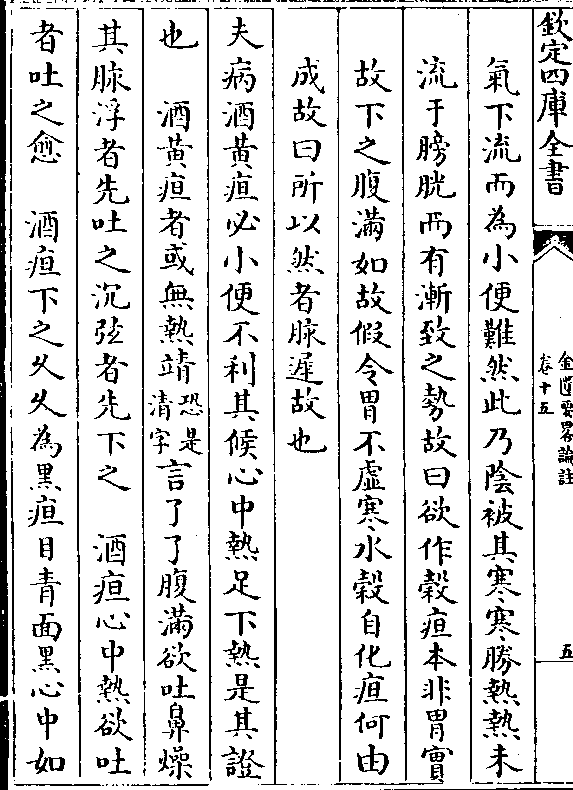 欽定四庫全書
金匱要畧論註
卷十五
五
氣下流而為小便難然此乃陰被其寒寒勝熱熱未
流于膀胱而有漸致之勢故曰欲作穀疸本非胃實
故下之腹滿如故假令胃不虛寒水穀自化疸何由
成故曰所以然者脉遲故也
夫病酒黃疸必小便不利其候心中熱足下熱是其證
也　酒黃疸者或無熱靖恐是清字言了了腹滿欲吐鼻燥
其脉浮者先吐之沉弦者先下之　酒疸心中熱欲吐
者吐之愈　酒疸下之久久為黑疸目青面黑心中如